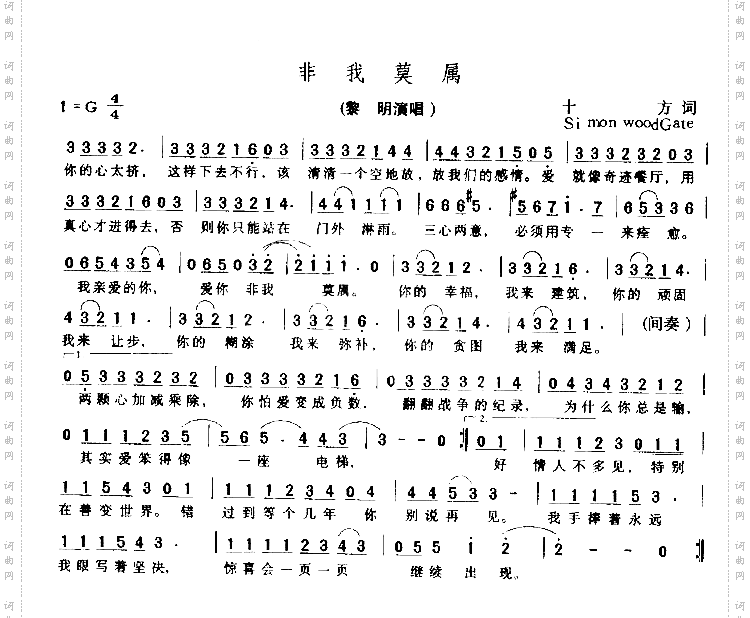 非 我 莫 属
1 = G 4/4 (黎 明演唱) 十 方 词
Si mon woodGate
3 3 3 3 2. | 3 3 3 3 2 1 6 0 3 | 3 3 3 2 1 4 4 | 4 4 3 2 1 5 0 5 | 3 3 3 2 3 2 0 3 |
你的心太挤， 这样下去不行，该 清清一个空地放，放我们的感情。爱 就像奇迹餐厅，用
3 3 3 3 2 1 6 0 3 | 3 3 3 3 2 1 5 5 | 4 4 1 1 1 1 | 6 6 6 #5. | #5 6 7 1. 7 | 6 5 3 3 6 |
真心才进得去，否 则你只能站在 门外 淋雨。 三心两意， 必须用专 一 来痊 愈。
0 6 5 4 3 5 4 | 0 6 5 0 3 2 | 2 1 1 1. 0 | 3 3 2 1 2. | 3 3 2 1 6. | 3 3 2 1 4.
我亲爱的你， 爱你 非我 莫属。 你的 幸福， 我来 建筑， 你的 顽固
4 3 2 1 1. | 3 3 2 1 2. | 3 3 2 1 6. | 3 3 2 1 4. | 4 3 2 1 1. | (间奏) |
我来 让步， 你的 糊涂 我来 弥补， 你的 贪图 我来 满足。
1.
0 5 3 3 3 2 3 2 | 0 3 3 3 3 2 1 6 | 0 3 3 3 3 2 1 4 | 0 4 3 4 3 2 1 2 |
两颗心加减乘除， 你怕爱变成负数， 翻翻战争的纪录， 为什么你总是输，
2.
0 1 1 1 2 3 5 | 5 6 5. 4 4 3 | 3 - - 0 :|| 0 1 | 1 1 1 2 3 0 1 1 |
其实爱笨得像 一座 电梯， 好 情人不多见，特别
1 1 5 4 3 0 1 | 1 1 1 2 3 4 0 4 | 4 4 5 3 3 - | 1 1 1 1 5 3.
在善变世界。错 过到等个几年 你 别说再 见。 我手捧着永远
1 1 1 5 4 3. | 1 1 1 1 2 3 4 3 | 0 5 5 1 2 | 2 - - 0 :||
我眼写着坚决， 惊喜会一页一页 继续 出 现。
词曲网